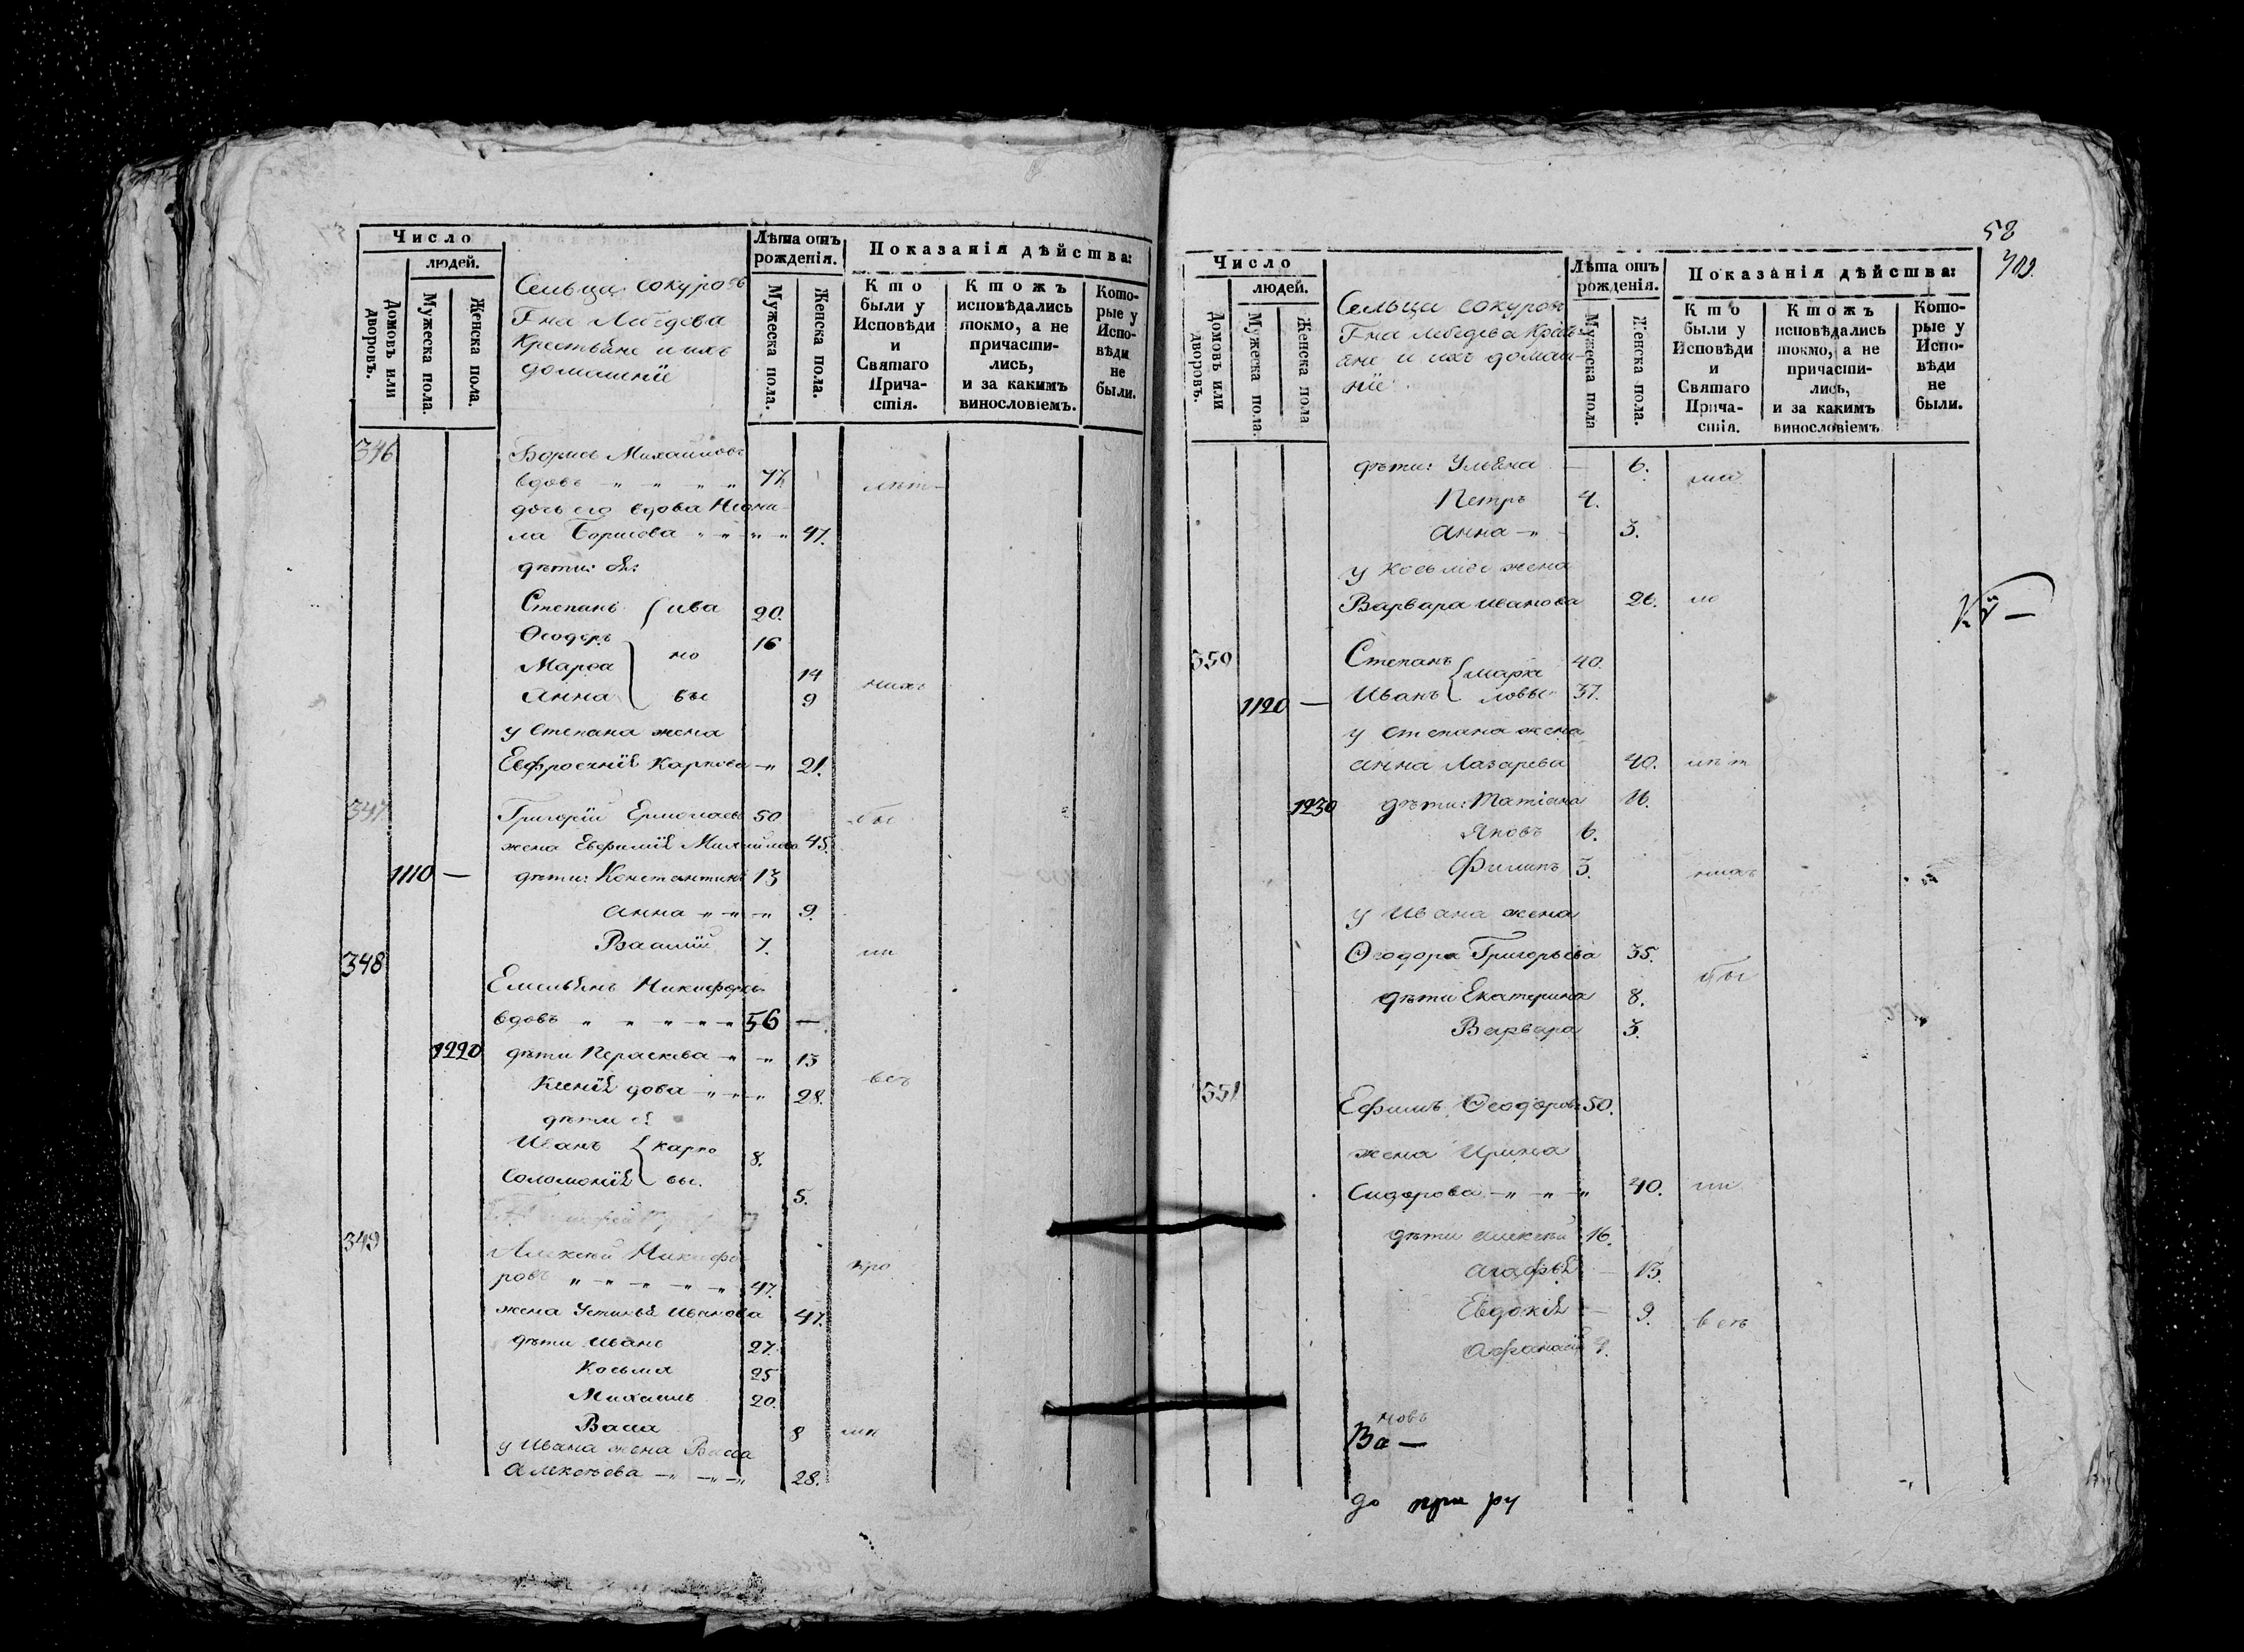 Число
людей.
Домовъ или дворовъ.
Мужеска пола.
Женска пола.
Сельца Сокурова
Г-на Лебедева
Крестьяне и ихъ
домашніе
Лѣта отъ рожденія.
Мужеска пола.
Женска пола.
Показанія дѣйства:
Кто были у Исповѣди и Святаго Причастія.
Ктожъ исповѣдались токмо, а не причастились, и за какимъ винословіемъ.
Которые у Исповѣди не были.
346 Борисъ Михайловъ
вдовъ 77
дочь его вдова Неони-
ла Борисова 47.
дѣти ея:
Степанъ ива 20.
Ѳеодоръ 16
Марѳа но 14
Анна вы 9
у Степана жена
Евфросинія Карпова 21.
347 Григорій Ермолаевъ 50
жена Евфимія Михайлова 45.
1110 — дѣти: Константинъ 13
Анна 9.
Василій 7.
348
Емельянъ Никифоровъ
вдовъ 56 —
1220 дѣти Параскева 13
Ксенія вдова 28.
дѣти ея
Иванъ карпо 8.
Соломонія вы. 5.
349
Алексѣй Никифо-
ровъ 47.
жена Устинья Иванова 47.
дѣти Иванъ 27.
Козьма 25
Михаилъ 20.
Васса 8
у Ивана жена Васса
Алексѣева 28.
58
709.
Число
людей.
Домовъ или дворовъ.
Мужеска пола.
Женска пола
Сельца Сокурова
Г-на Лебедева Кресть-
яне и ихъ домаш-
ніе
Лѣта отъ рожденія.
Мужеска пола
Женска пола.
Показанія дѣйства:
Кто были у Исповѣди и Святаго Причастія.
Ктожъ исповѣдались токмо, а не причастились, и за какимъ винословіемъ
Которые у Исповѣди не были.
дѣти: Ульяна 6.
Петръ 4.
Анна 3.
у Козьмы жена
Варвара Иванова 26.
350 Степанъ марке 40.
1120 — Иванъ ловы 37.
у Степана жена
Анна Лазарева 40.
1230 дѣти: Татіана 11.
Яковъ 6.
Филипъ 3.
у Ивана жена
Ѳеодора Григорьева 35.
дѣти Екатерина 8.
Варвара 3.
351
Ефимъ Ѳеодоровъ 50.
жена Ирина
Сидорова 40.
дѣти Алексѣй 16.
Агафья 13.
Евдокія 9.
Афанасій 4.
новъ
Ва —
до при ру